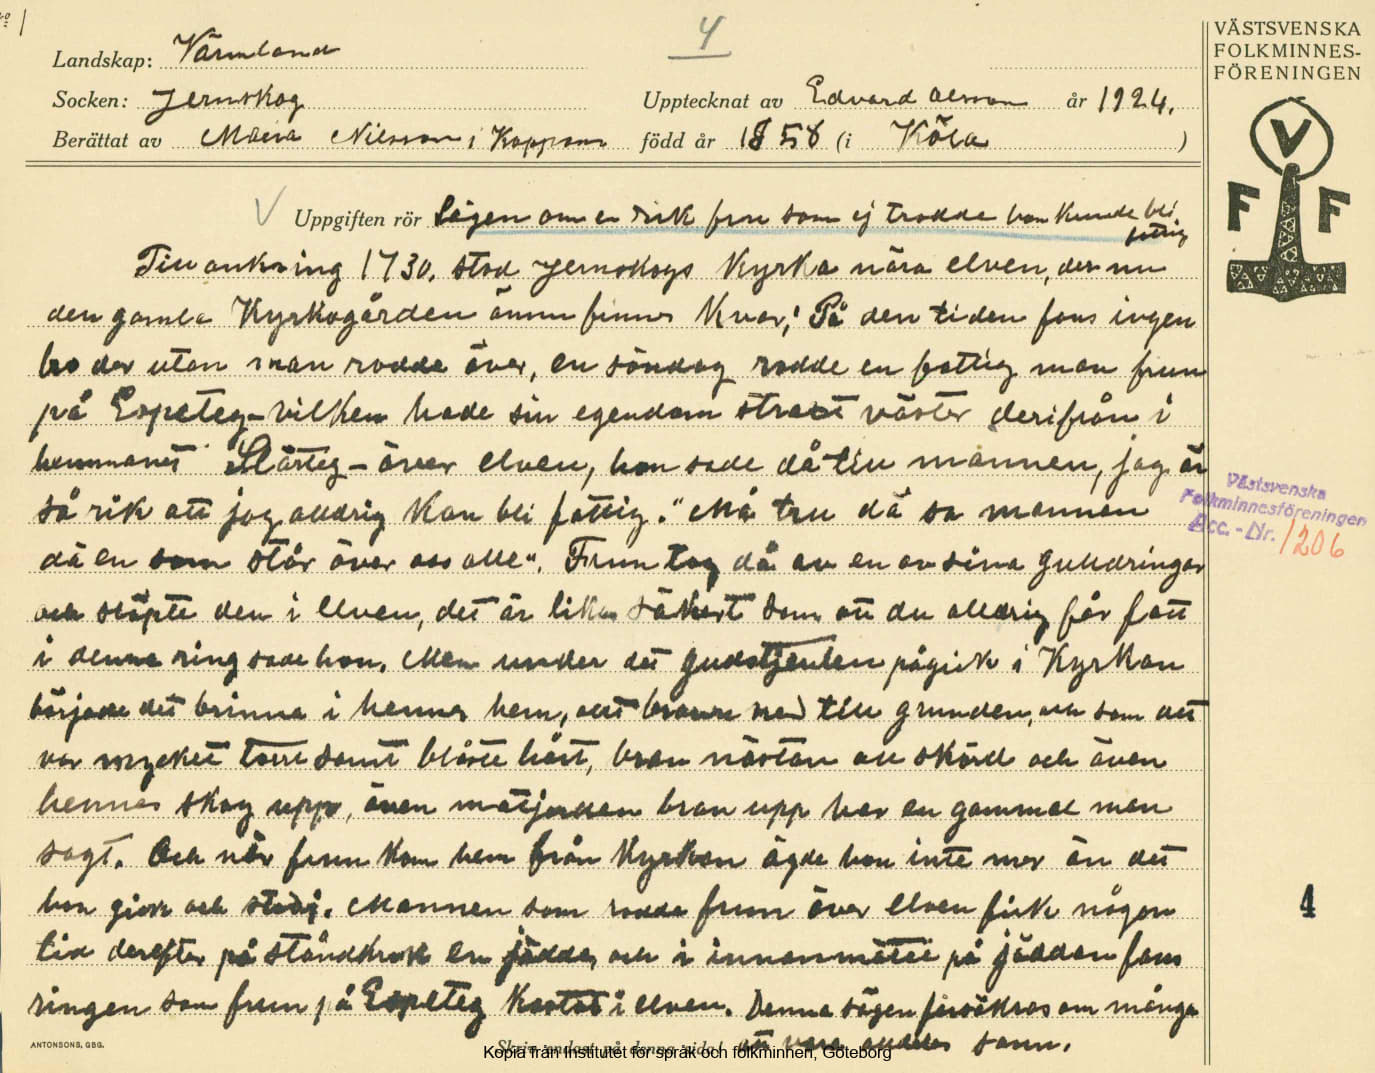 4
VÄSTSVENSKA
FOLKMINNES-
FÖRENINGEN
Landskap: Värmland
Socken: Jernskog
Upptecknat av Edvard Olsson år 1924.
Berättat av Maria Nilsson i Koppsan född år 1858 (i Köla )
V Uppgiften rör Sägen om en rik fru som ej trodde hon kunde bli
fattig
V
F F
Till omkring 1730. stod Jernskogs Kyrka nära elven, der nu
den gamla Kyrkogården ännu finnes Kvar,! På den tiden fans ingen
bro der utan man rodde över, en söndag rodde en fattig man frun
på Espeteg – vilken hade sin egendom straxt väster derifrån i
hemmanet Slärteg – över elven, hon sade då till mannen, jag är
så rik att jag alldrig Kan bli fattig." Må tru då sa mannen
då en som står över oss alle". Frun tog då av en av sina gulldringar
och släpte den i Elven, det är lika säkert som att du alldrig får fatt
i denna ring sade hon. Men under det gudstjensten pågick i Kyrkan
började det brinna i hennes hem, allt brann ned till grunden, och som det
var mycket torrt samt blåste hårt, bran nästan all skörd och även
hennes skog upp, även matjorden bran upp har en gammal man
sagt. Och när frun kom hem från Kyrkan ägde hon inte mer än det
hon gick och stod i. Mannen som rodde frun över Elven fick någon
tid derefter på ståndkrok en jädda, och i innanmätet på jäddan fans
ringen som frun på Espeteg Kastat i elven. Denna sägen försäkras om många
att vara alldeles sann.
Västsvenska
Folkminnesföreningen
Acc.-Nr. 1206
4
ANTONSONS, GBG.
Skriv endast på denna sida!
Kopia från Institutet för språk och folkminnen, Göteborg